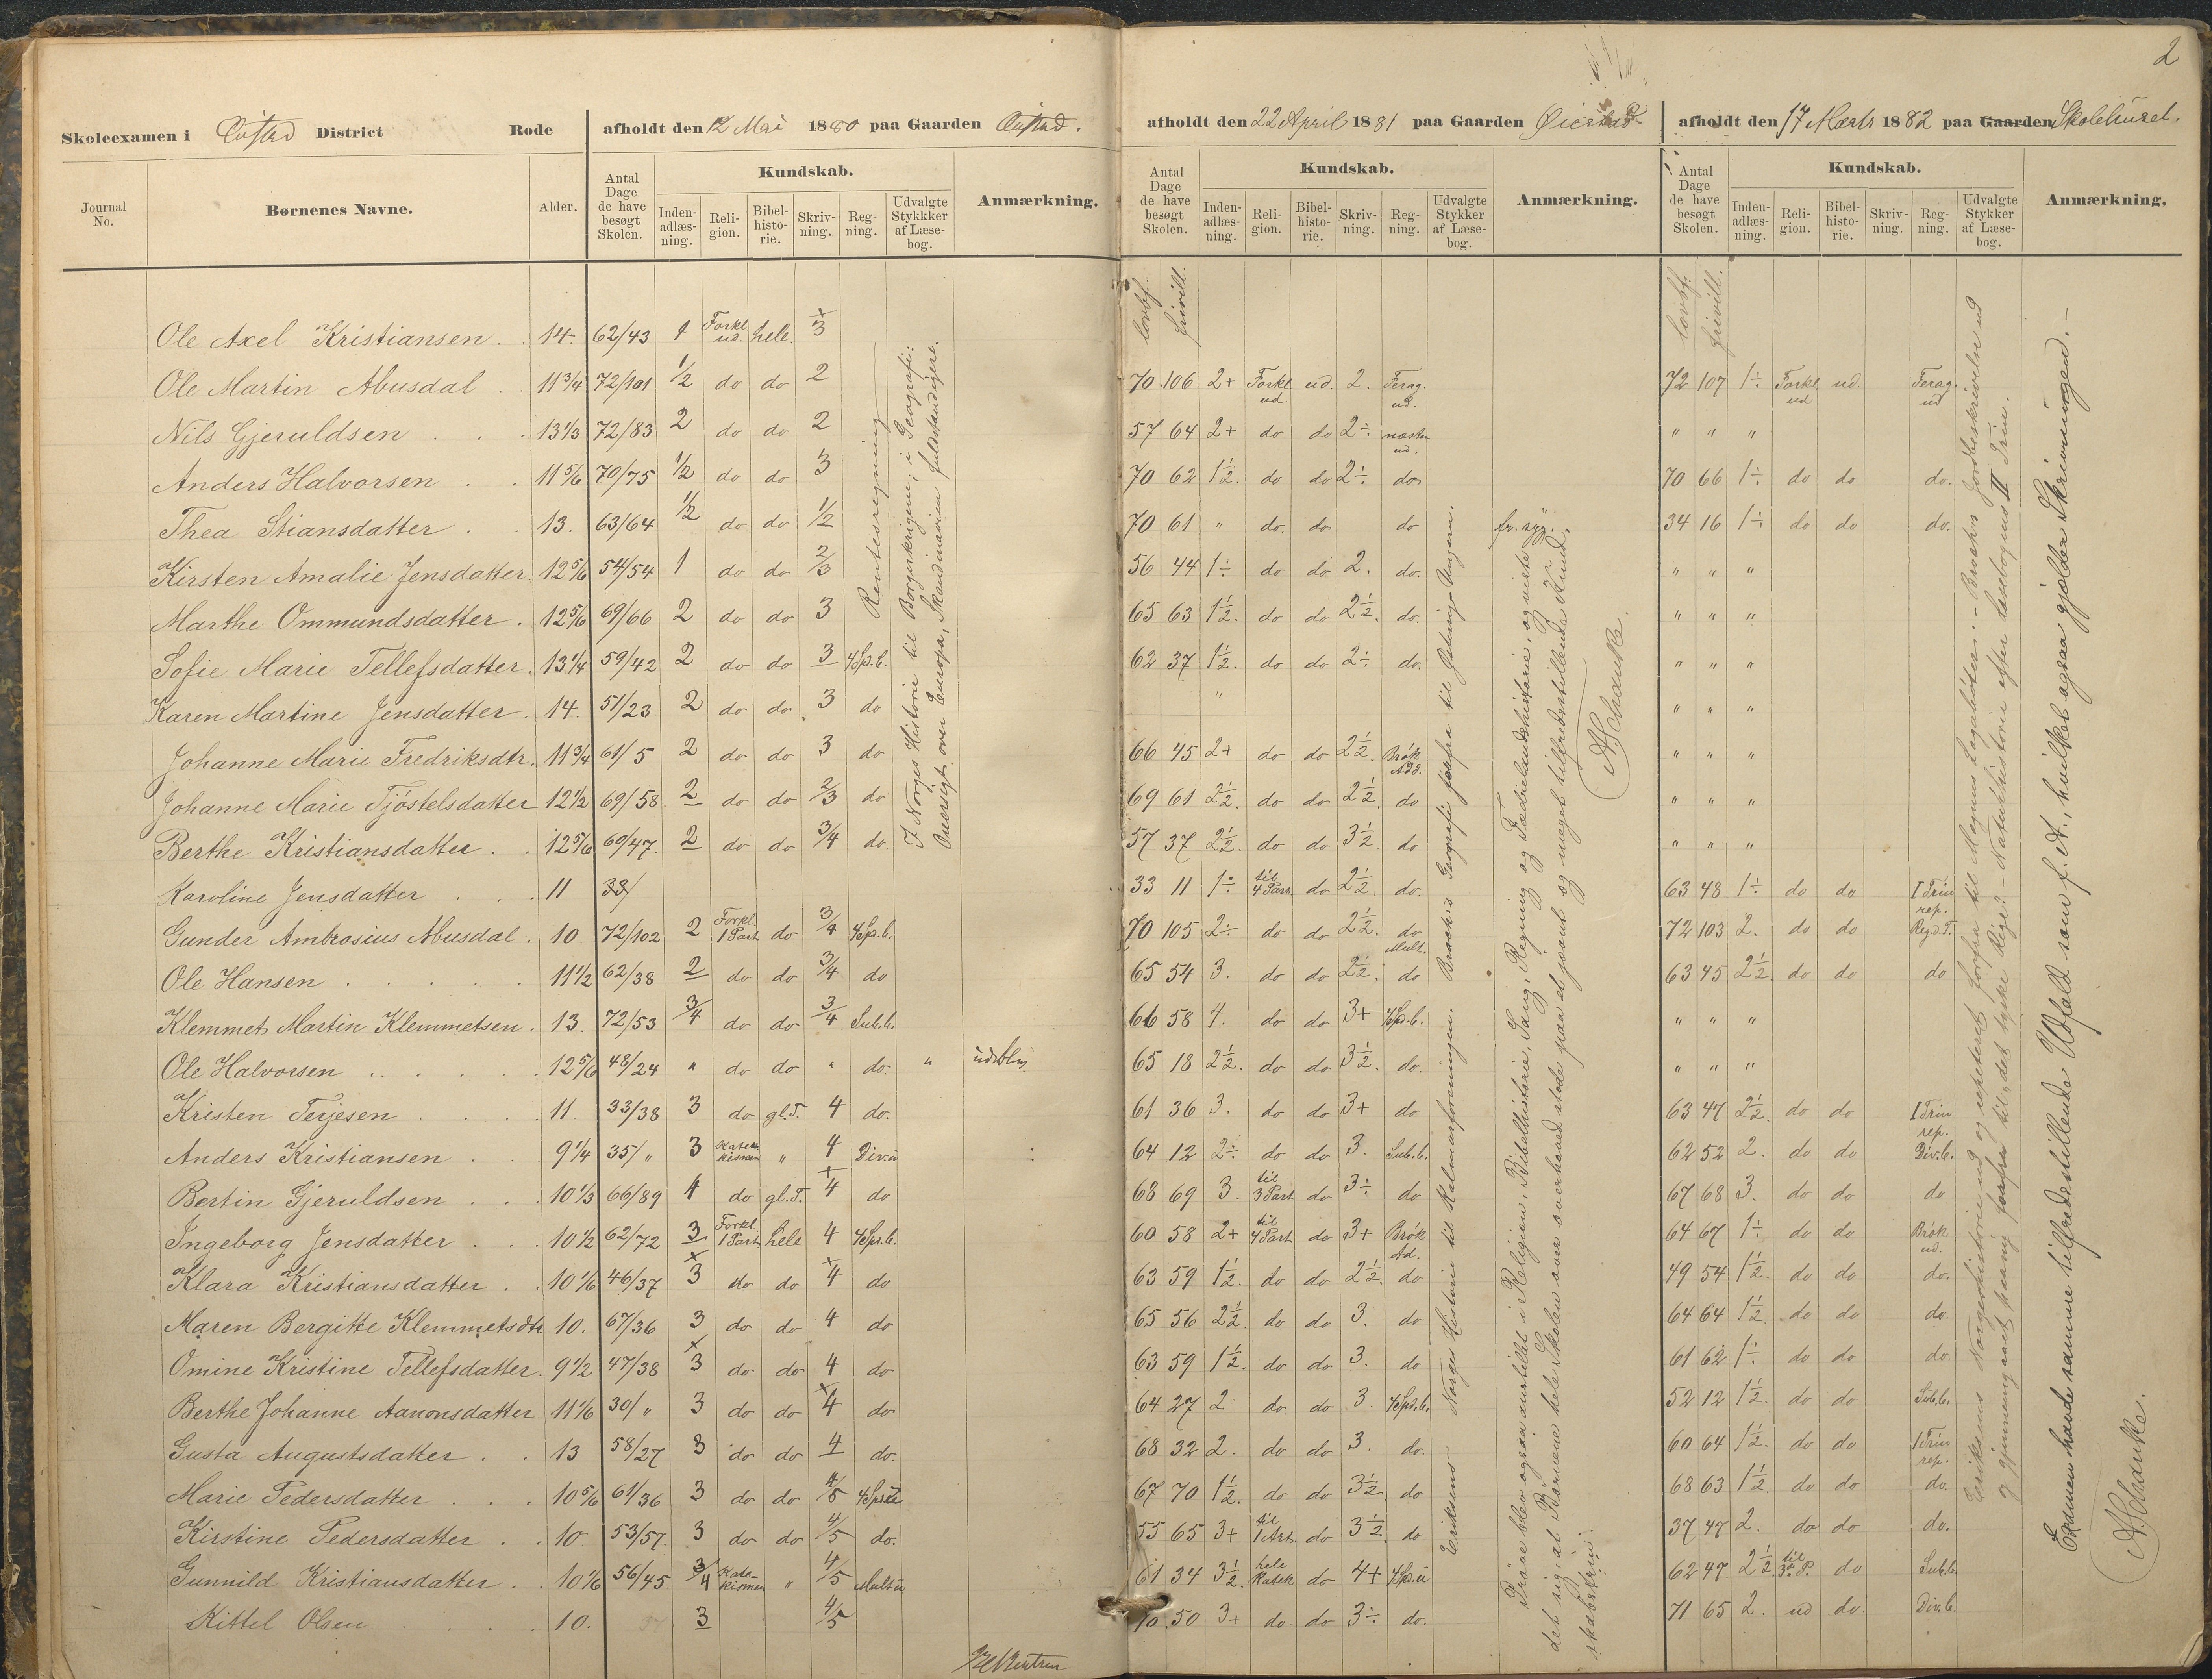 2
Skoleexamen i Oiestad District Rode
afholdt den 12 Mai 1880 paa Gaarden Oiestad.
afholdt den 22 April 1881 paa Gaarden Øiestad
afholdt den 17 Marts 1882 paa Gaarden Skolehuset.
Journal No. Børnenes Navne. Alder. Antal Dage de have besøgt Skolen. Kundskab. Indenadlæsning. Religion. Bibelhistorie. Skrivning. Regning. Udvalgte Stykkker af Læsebog. Anmærkning.
Antal Dage de have besøgt Skolen. Kundskab. Indenadlæsning. Religion. Bibelhistorie. Skrivning. Regning. Udvalgte Stykker af Læsebog. Anmærkning.
Antal Dage de have besøgt Skolen. Kundskab. Indenadlæsning. Religion. Bibelhistorie. Skrivning. Regning. Udvalgte Stykker af Læsebog. Anmærkning.
lovbf. frivill. lovbf. frivill.
Ole Axel Kristiansen. 14. 62/43 1 Forkl. ud. hele. 3
Ole Martin Abusdal 11 3/4 72/101 1/2 do do 2 70 106 2+ Forkl. ud. ud. 2. Ferag. ud. 72 107 1÷ Forkl. ud ud. Ferag. ud
Nils Gjeruldsen 13 1/3 72/83 2 do do 2 57 64 2+ do do 2÷ næsten ud. " " "
Anders Halvorsen 11 5/6 70/75 1/2 do do 3 70 62 1½. do do 2÷ do 70 66 1÷ do do do.
Thea Stiansdatter 13. 63/64 1/2 do do 1/2 70 61 " do. do. do fr. syg. 34 16 1÷ do do do.
Kirsten Amalie Jensdatter. 12 5/6 54/54 1 do do 2/3 56 44 1÷ do do 2. do. " " "
Marthe Ommundsdatter. 12 5/6 69/66 2 do do 3 65 63 1½. do do 2½. do. " " "
Sofie Marie Tellefsdatter. 13 1/4 59/42 2 do do 3 4 Sp.b. 62 37 1½. do do 2÷ do. " " "
Karen Martine Jensdatter. 14. 51/23 2 do do 3 do " " " "
Johanne Marie Fredriksdtr. 11 3/4 61/5 2 do do 3 do 66 45 2+ do do 2½ Brøk Add. " " "
Johanne Marie Tjøstelsdatter 12 1/2 69/58 2 do do 2/3 do 69 61 2½. do do 2½. do " " "
Berthe Kristiansdatter. 12 5/6 60/47. 2 do do 3/4 do. 57 37 2½. do do 3½. do " " "
Karoline Jensdatter 11 33/ 33 11 1÷ til 4 Part. do 2½ do. 63 48 1÷ do do I Trin rep.
Gunder Ambrosius Abusdal. 10. 72/102 2 Forkl. 1 Part do 3/4 4 Sp.b. 70 105 2÷ do do 2½. do Mult. 72 103 2. do do Reg.d.T.
Ole Hansen 11 1/2 62/38 2 do do 3/4 do 65 54 3. do do 2½. do 63 45 2½. do do do
Klemmet Martin Klemmetsen. 13. 72/53 3/4 do do 3/4 Sub.b. 66 58 4. do do 3+ 4 Sp.b. " " "
Ole Halvorsen 12 5/6 48/24 " do do " do. " udebl. 65 18 2½. do do 3½. do. " " "
Kristen Terjesen 11. 33/38 3 do gl.T. 4 do. 61 36 3. do do 3+ do 63 47 2½ do do I Trin rep.
Anders Kristiansen 9 1/4 35/" 3 Katekismen " 4 Div.u 64 12 2÷ do do 3. Sub.b. 62 52 2. do do Div.b.
Bertin Gjeruldsen 10 1/3 66/89 4 do gl.T. 4 do 68 69 3. til 3 Part do 3÷ do 67 68 3. do do do
Ingeborg Jensdatter 10 1/2 62/72 3 Forkl. 1 Part hele 4 4 Sp.b. 60 58 2+ til 4 Part do 3+ Brøk Ad. 64 67 1÷ do do Brøk ud.
Klara Kristiansdatter 10 1/6 46/37 3 do do 4 do 63 59 1½. do do 2½. do 49 54 1½. do do do.
Maren Bergitte Klemmetsdtr 10. 67/36 3 do do 4 do 65 56 2½. do do 3. do 64 64 1½. do do do.
Omine Kristine Tellefsdatter. 9 1/2 47/38 3 do do 4 do 63 59 1½. do do 3. do 61 62 1÷ do do do.
Berthe Johanne Aanonsdatter. 11 1/6 30/" 3 do do 4 do 64 27 2 do do 3. 4 Sp.b. 52 12 1½. do do Sub.b.
Gusta Augustsdatter 13 58/27 3 do do 4 do. 68 32 2. do do 3. do. 60 64 1½. do do I Trin rep.
Marie Pedersdatter 10 5/6 61/36 3 do do 4/5 4 Sp.u 67 70 1½. do do 3½. do 68 63 1½. do do do.
Kirstine Pedersdatter. 10 53/57. 3 do do 4/5 do. 55 65 3+ til 1 Art. do 3½. do 37 47 2. do do do.
Gunnild Kristiansdatter 10 1/6 56/45. 3/4 Katekismen " 4/5 Mult.u 61 34 3½. hele Katek. do 4+ 4 Sp.u 62 47. 2½. til 3. P. do Sub.b.
Kittel Olsen 10. 3 4/5 70 50 3+ do. do 3÷. do. 71 65 2. ud do. Div.b.
Rentesregning
I Norges Historie til Borgerkrigene; i Geografi:
Oversigt over Europa, Skandinavien fuldstændigere.
Eriksens Norges Historie til Kalmarforeningen. Brochs Geografi forfra til Østrig-Ungarn.
Prøve blev ogsaa anstillet i Religion, Bibelhistorie, Sang, Regning og Fædrelandshistorie, og viste
det sig, at Børnene hele Skolen over overhoved stode paa et jævnt og meget tilfredsstillende Kund-
skabstrin.
A. Schanke.
Eriksens Norgeshistorie ud og repeteret forfra til Magnus Lagabøter. – Brochs Jordbeskrivelse ud
og gjennemgaaet paany forfra til det tyske Rige. – Naturhistorie efter Læsebogens II Trin.
Examen havde samme tilfredsstillende Udfald som f. A., hvilket ogsaa gjælder Skrivningen. –
A. Schanke.